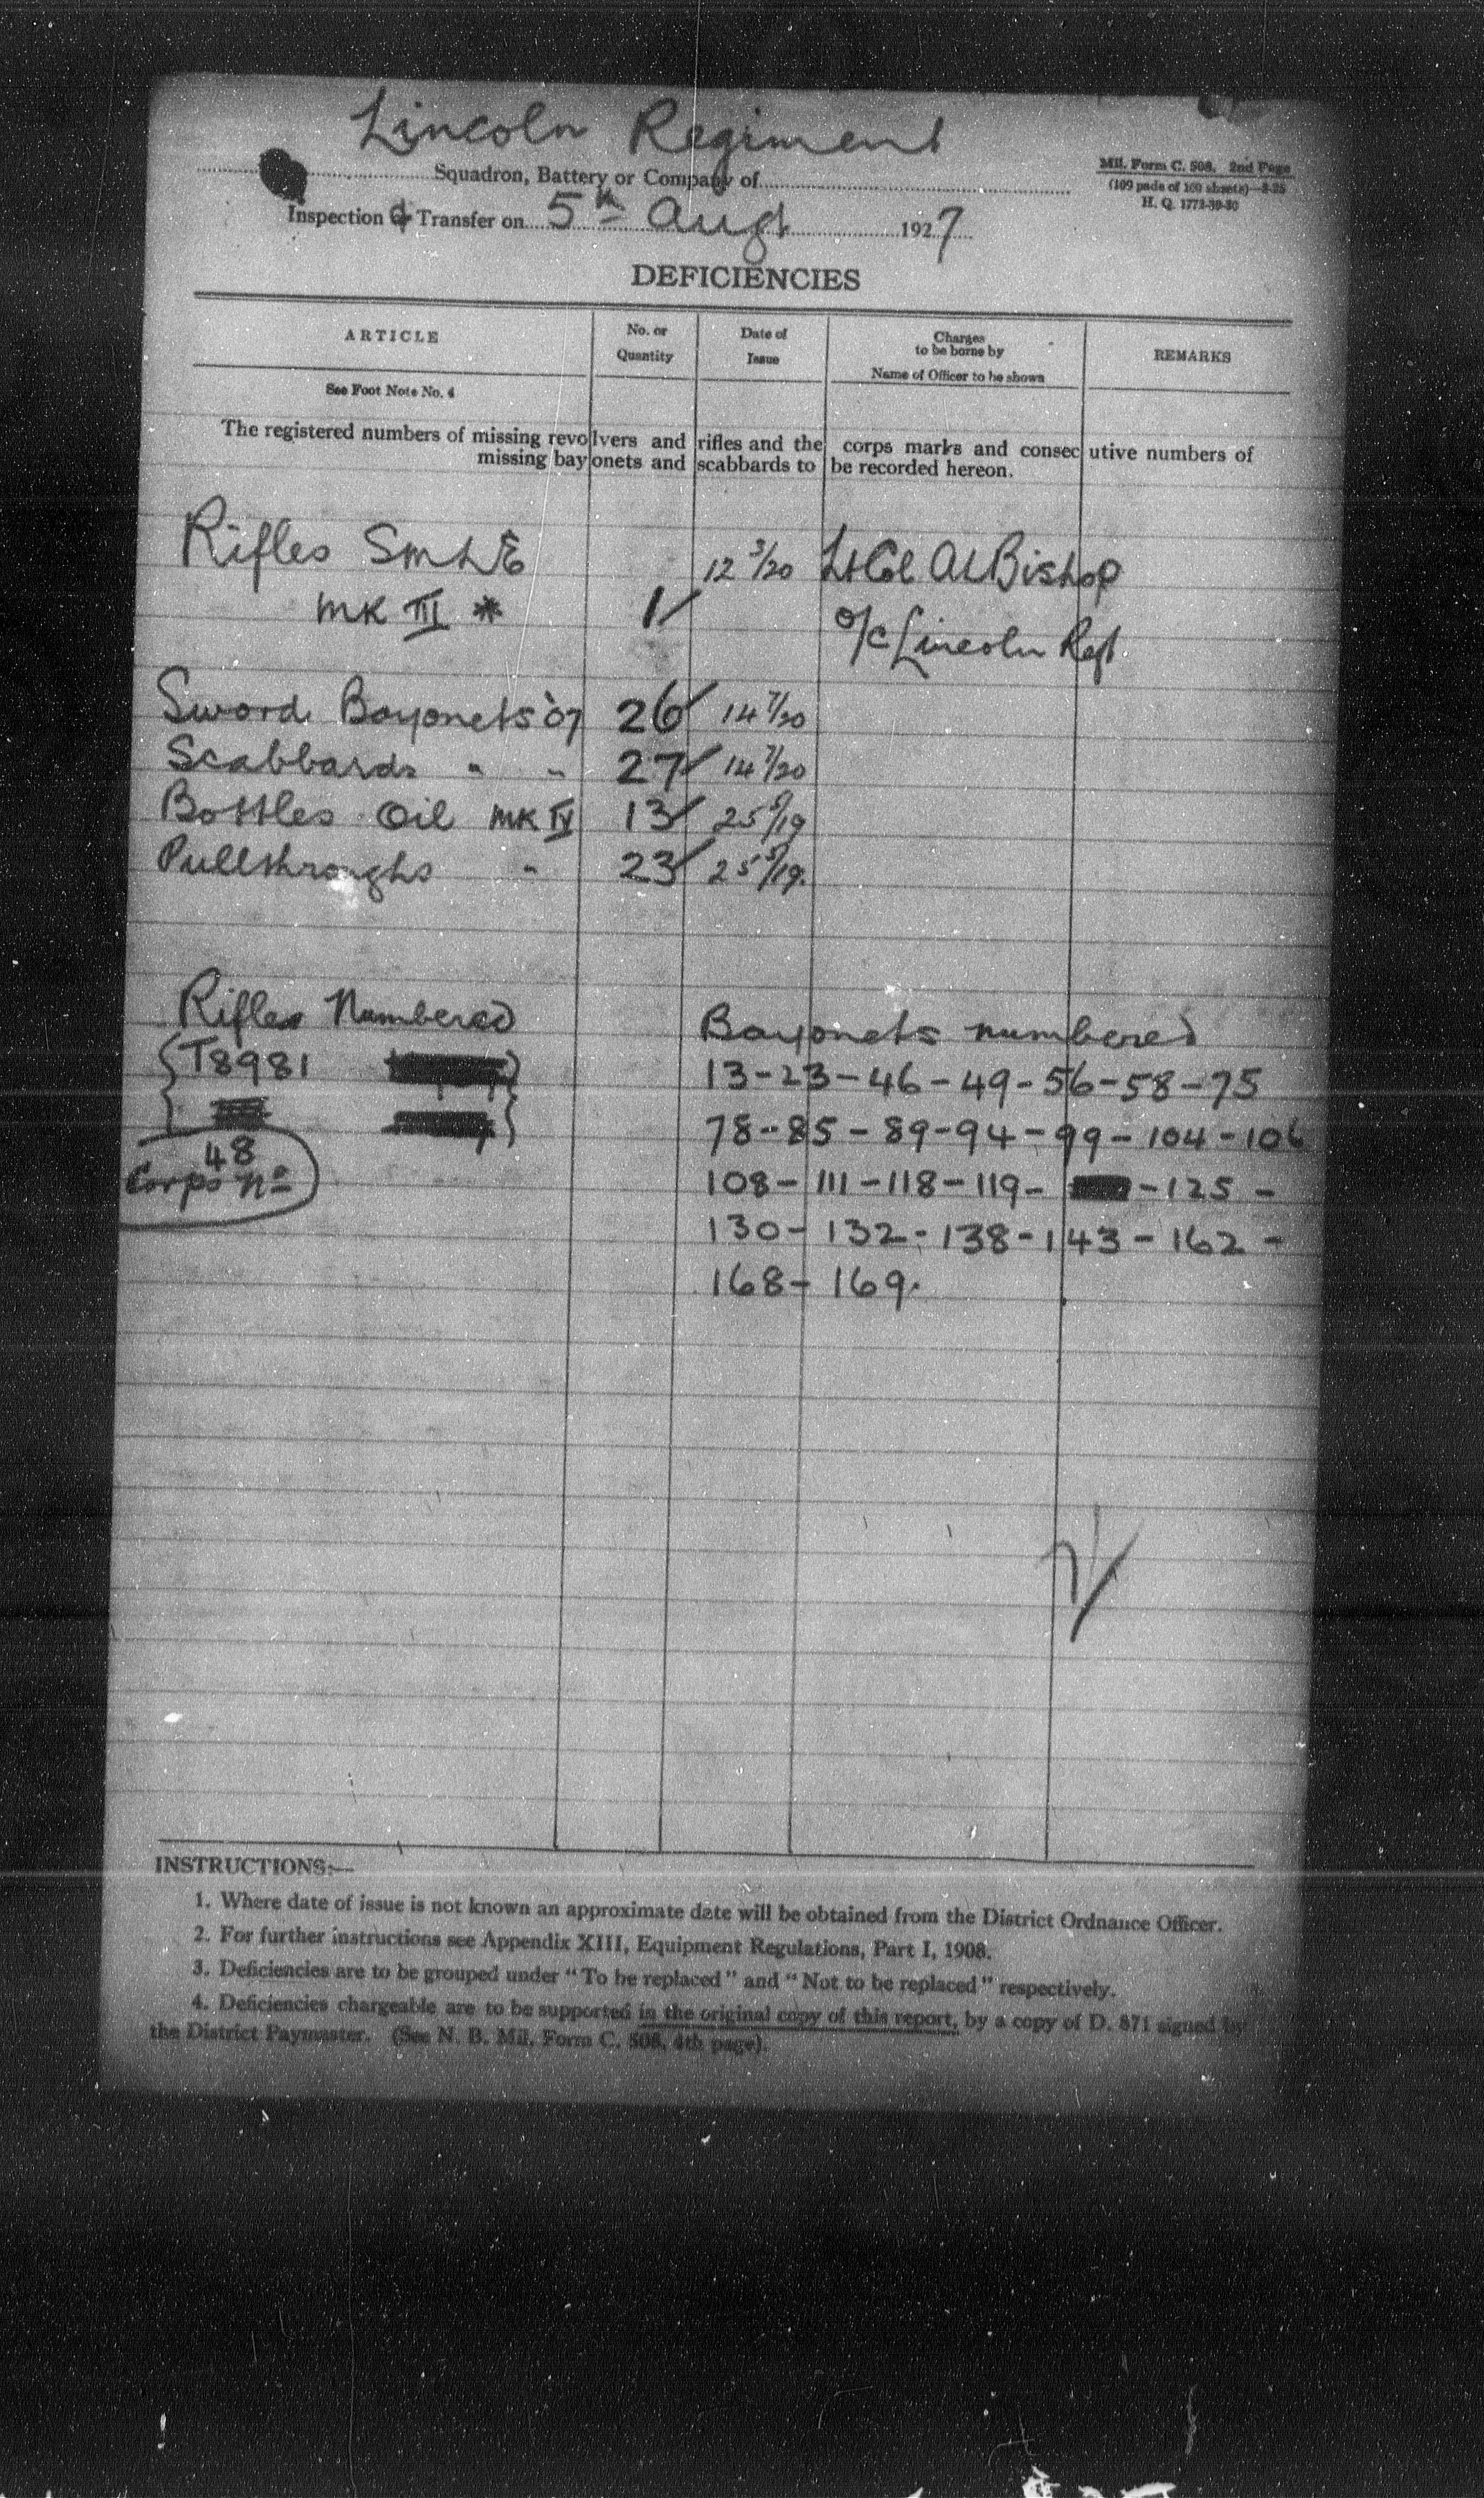 Lincoln Regiment
Squadron, Battery or Company of
Mil. Form C. 508. 2nd Page
(109 pads of 100 sheets)—8-25
H. Q. 1772-39-80
Inspection & Transfer on 5th Augt 1927
DEFICIENCIES
ARTICLE
No. or Quantity
Date of Issue
Charges to be borne by
Name of Officer to be shown
REMARKS
See Foot Note No. 4
The registered numbers of missing revolvers and rifles and the corps marks and consecutive numbers of
missing bayonets and scabbards to be recorded hereon.
Rifles SMLE 12 3/20 Lt Col AL Bishop
MK III * 1 o/c Lincoln Regt.
Sword Bayonets '07 26 14 7/20
Scabbards " " 27 14 7/20
Bottles Oil MK IV 13 25 5/19
Pullthroughs " 23 25 5/19.
Rifles Numbered
T8981
48
Corps No
Bayonets numbered
13-23-46-49-56-58-75
78-85-89-94-99-104-106
108-111-118-119- -125-
130-132-138-143-162-
168-169.
INSTRUCTIONS:—
1. Where date of issue is not known an approximate date will be obtained from the District Ordnance Officer.
2. For further instructions see Appendix XIII, Equipment Regulations, Part I, 1908.
3. Deficiencies are to be grouped under "To be replaced" and "Not to be replaced" respectively.
4. Deficiencies chargeable are to be supported in the original copy of this report, by a copy of D. 871 signed by
the District Paymaster. (See N. B. Mil. Form C. 508, 4th page).